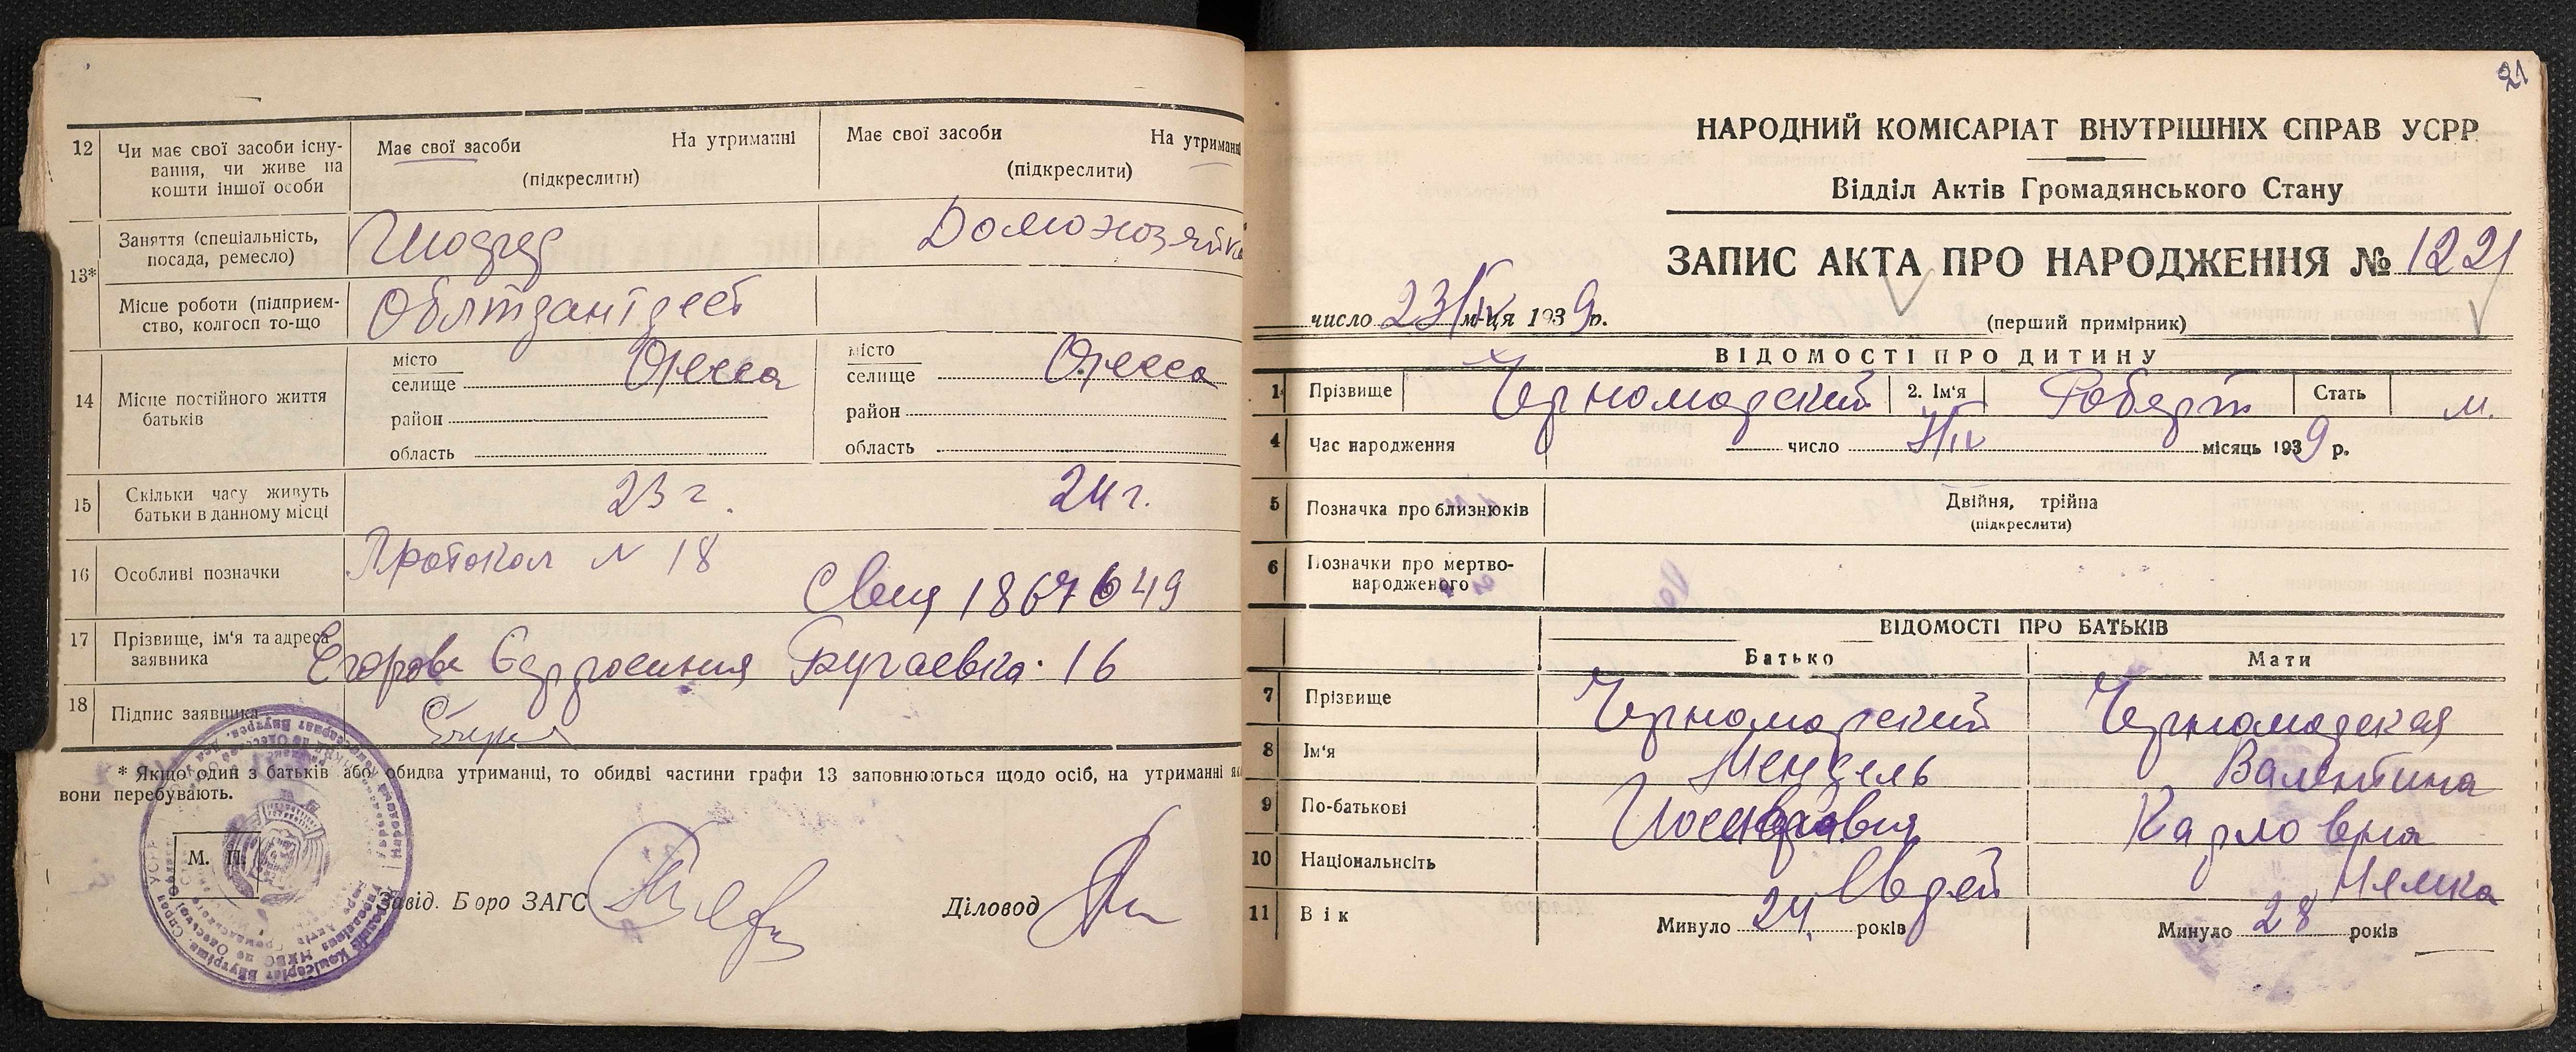 12 Чи має свої засоби існу-
вання, чи живе на
кошти іншої особи
Має свої засоби На утриманні
(підкреслити)
Має свої засоби На утриманні
(підкреслити)
13* Заняття (спеціальність,
посада, ремесло)
Домохозяйка
Місце роботи (підприєм-
ство, колгосп то-що
14 Місце постійного життя
батьків
місто
селище Одесса
район
область
місто
селище Одесса
район
область
15 Скільки часу живуть
батьки в данному місці
23 г.
24 г.
16 Особливі позначки
Протокол N 18
17 Прізвище, ім'я та адреса
заявника
Егорова Бугаевка 16
18 Підпис заявника
* Якщо один з батьків або обидва утриманці, то обидві частини графи 13 заповнюються щодо осіб, на утриманні як
вони перебувають.
М. П.
Завід. Бюро ЗАГС
Діловод
21
НАРОДНИЙ КОМІСАРІАТ ВНУТРІШНІХ СПРАВ УСРР
Відділ Актів Громадянського Стану
ЗАПИС АКТА ПРО НАРОДЖЕННЯ № 1221
число 23/IV м-ця 1939 р.
(перший примірник)
ВІДОМОСТІ ПРО ДИТИНУ
1 Прізвище Черноморский 2. Ім'я Роберт Стать м.
4 Час народження число місяць 1939 р.
5 Позначка про близнюків
Двійня, трійна
(підкреслити)
6 Позначки про мертво-
народженого
ВІДОМОСТІ ПРО БАТЬКІВ
Батько Мати
7 Прізвище Черноморский Черноморская
8 Ім'я Мендель Валентина
9 По-батькові Карловна
10 Національнсіть Еврей Немка
11 Вік Минуло 24 років Минуло 28 років